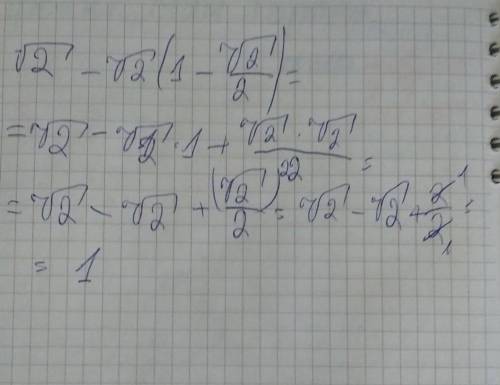 √2 - √2(1 - √2/2) =
= √2 - √2 · 1 + (√2 · √2)/2 =
= √2 - √2 + (√2)²/2 = √2 - √2 + 2/2 =
= 1